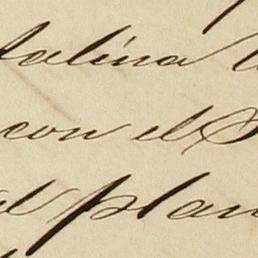 talina
con el S
al plan